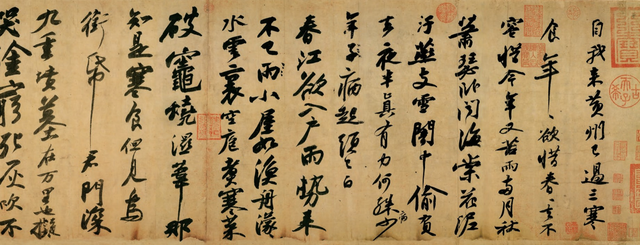 自我來黃州已過三寒
食年〻欲惜春〻去不
容惜今年又苦雨兩月秋
蕭瑟卧聞海棠花泥
汙燕支雪闇中偷負
去夜半真有力何殊少
病
年子病起頭已白
春江欲入戶雨勢來
不已雨小屋如漁舟濛〻
水雲裏空庖煮寒菜
破竈燒濕葦那
知是寒食但見烏
銜帋君門深
九重墳墓在万里也擬
哭塗窮死灰吹不